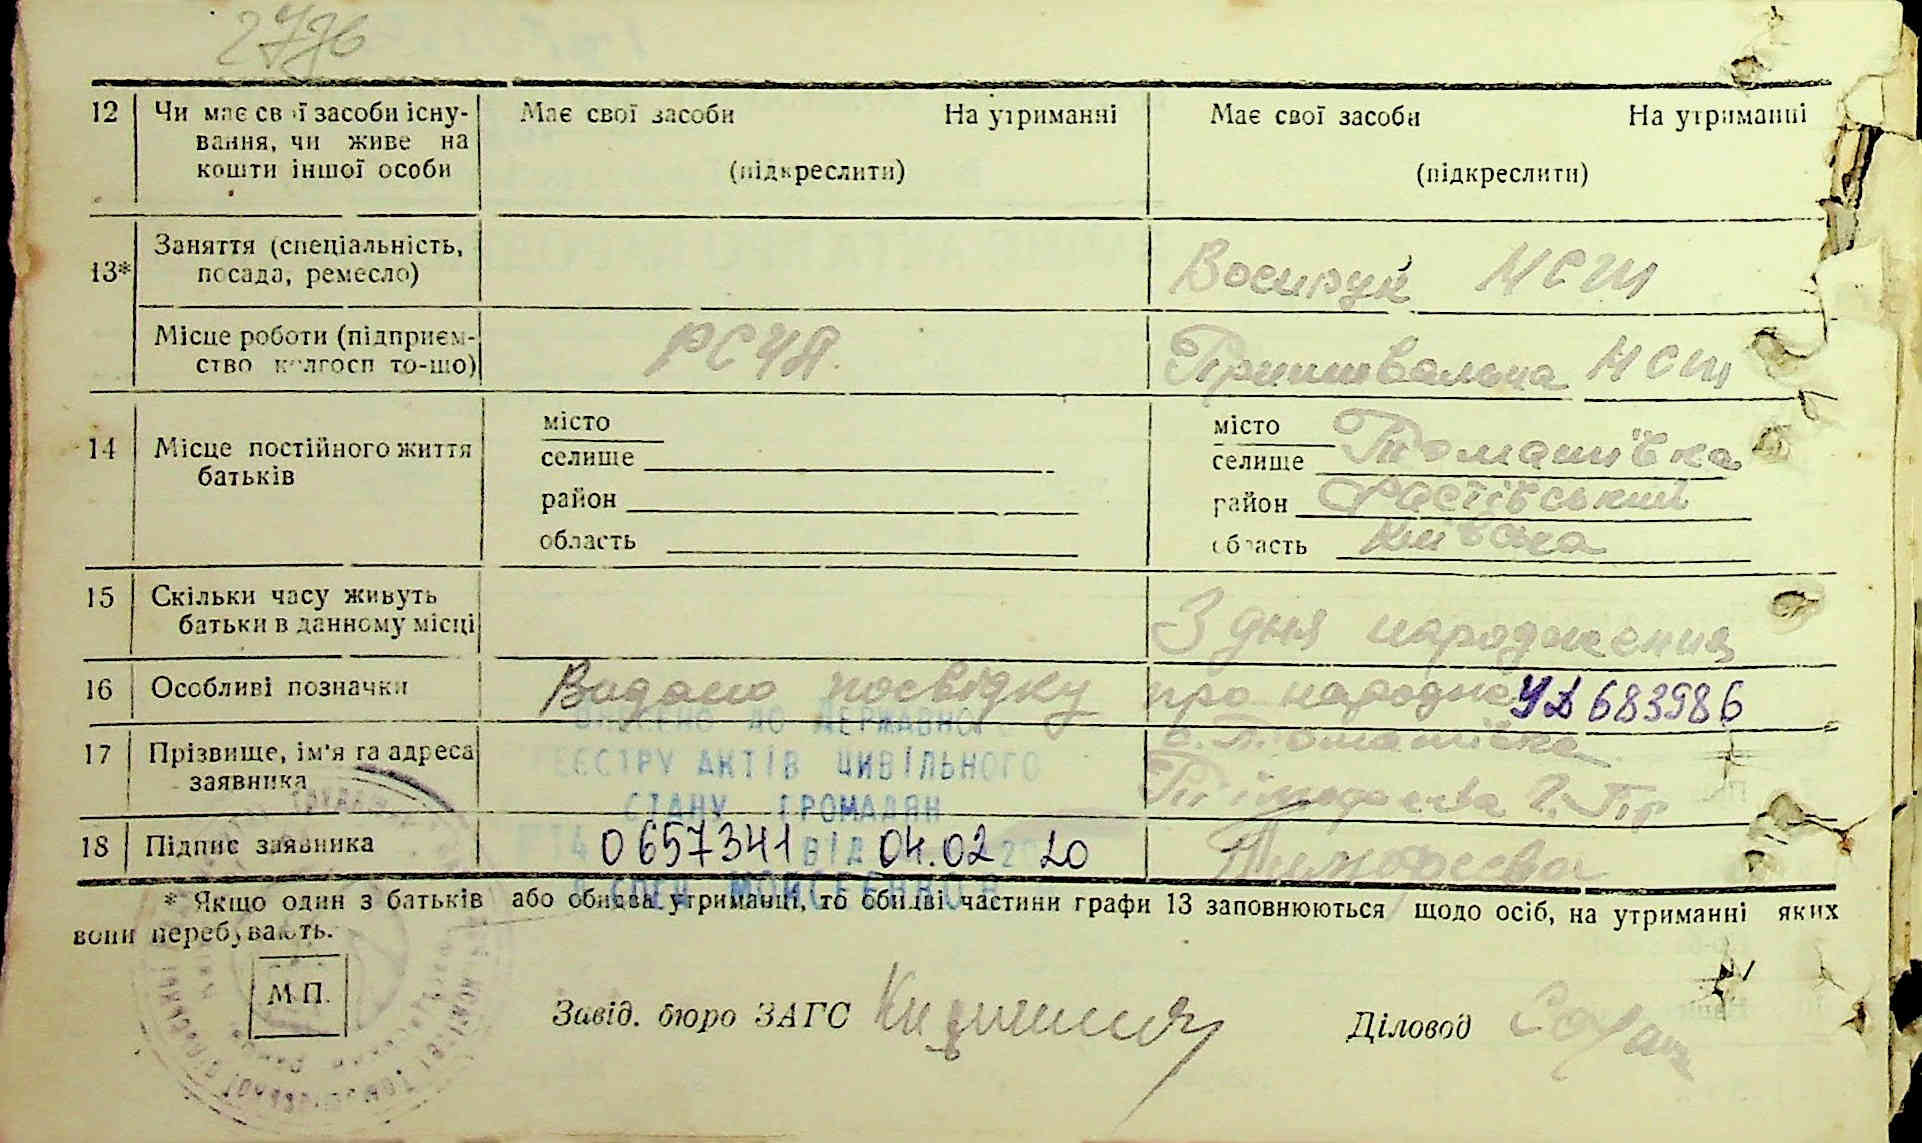 2776
12 Чи має свої засоби існу- Має свої засоби На утриманні Має свої засоби На утриманні
вання, чи живе на
кошти іншої особи (підкреслити) (підкреслити)
13* Заняття (спеціальність,
посада, ремесло) Воєнрук НСШ
Місце роботи (підприєм- РСЧА
ство колгосп то-що) НСШ
14 Місце постійного життя місто місто
батьків селище селище Томашівка
район район Фастівський
область область Київська
15 Скільки часу живуть З дня народження
батьки в данному місці
16 Особливі позначки Видано посвідку про народже УД 683986
17 Прізвище, ім'я та адреса с. Томашівка
заявника Тімофєєва Г. Гр
ВНЕСЕНО ДО ДЕРЖАВНОГО
РЕЄСТРУ АКТІВ ЦИВІЛЬНОГО
СТАНУ ГРОМАДЯН
18 Підпис заявника 0657341 ВІД 04.02 2020 Тимофєєва
МОЙСЕЄНКО
* Якщо один з батьків або обидва утриманці, то обидві частини графи 13 заповнюються щодо осіб, на утриманні яких
вони перебувають.
М.П.
Завід. бюро ЗАГС Діловод